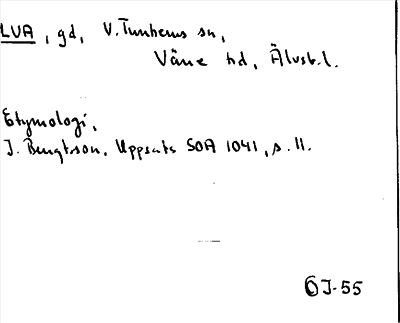 LVA, gd, V. Tunhems sn,
Väne hd, Älvsb.l.
Etymologi,
J. Bengtsson, Uppsats SOA 1041, s. 11.
OJ-55